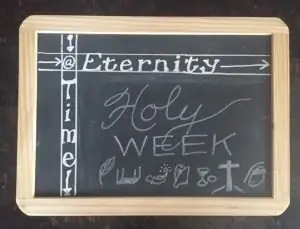 @ Eternity
Time
Holy
WEEK